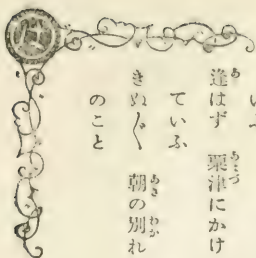 いふ
逢はず 粟津にかけ
ていふ
きぬ〴〵 朝の別れ
のこと